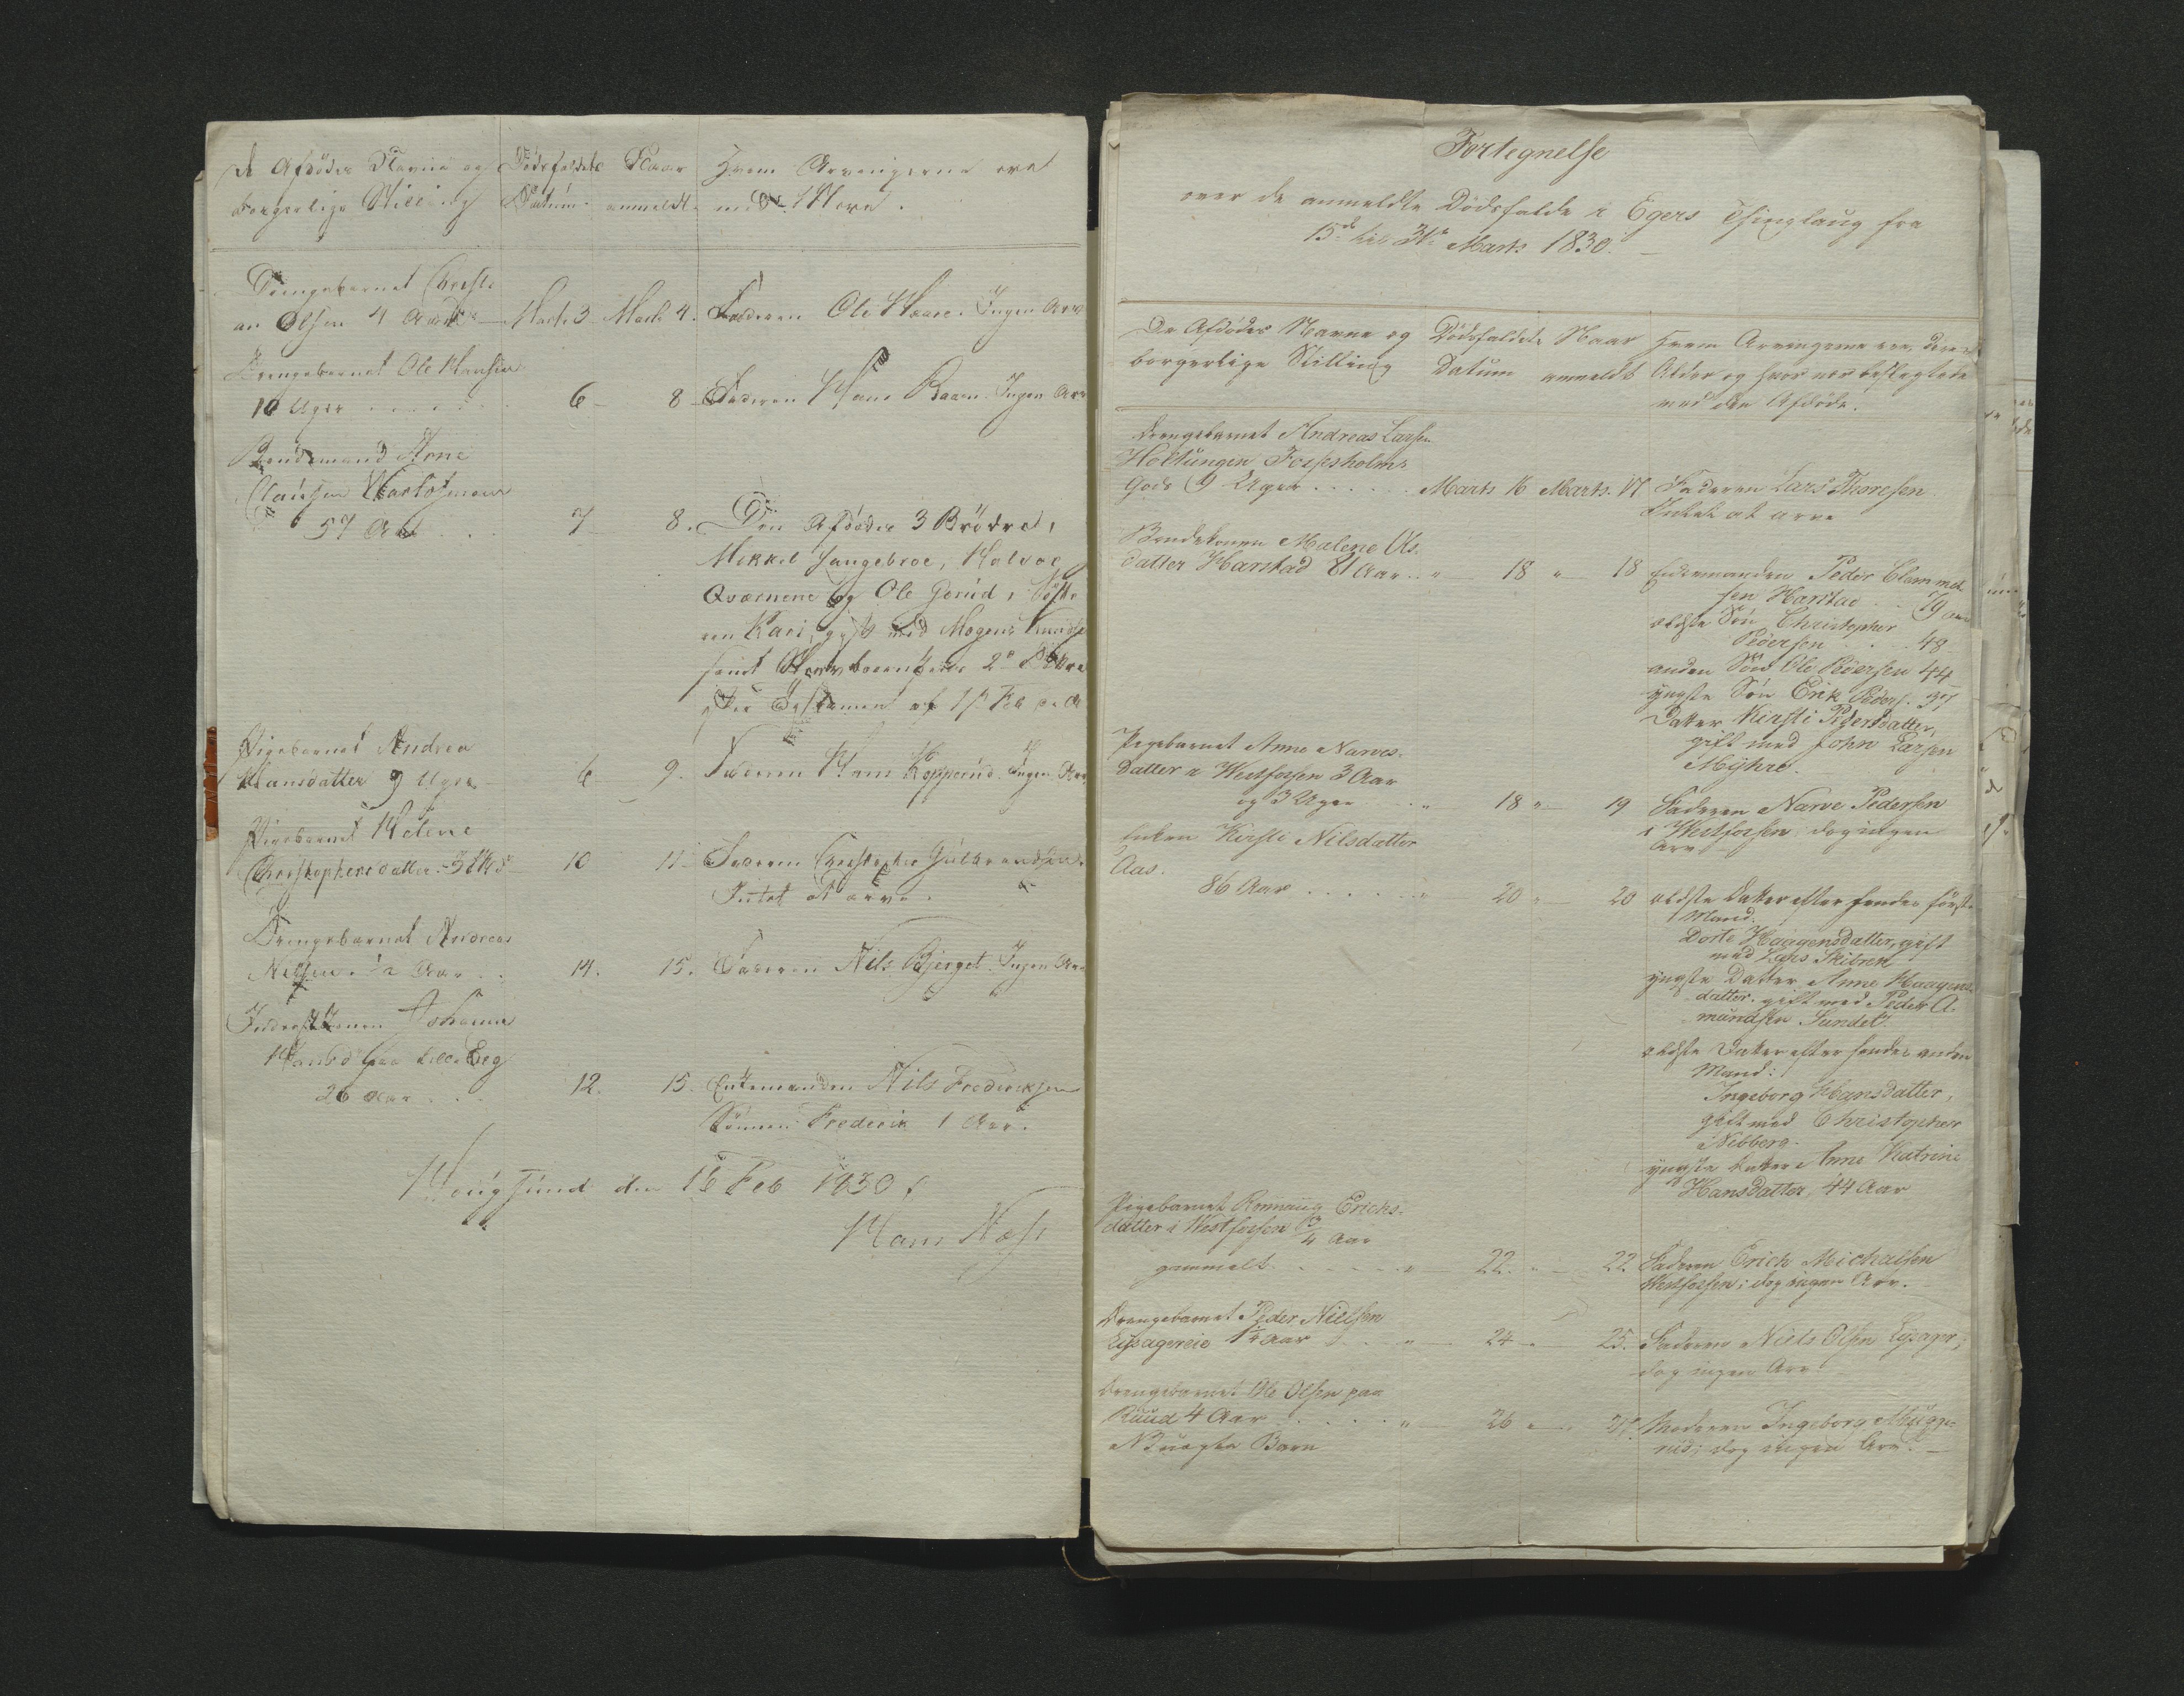 De Afdødes Navne og
borgerlige Stilling
Dødsfaldets
Datum
Naar
anmeldt
Hvem Arvingerne ere
med Mere.
Drengebarnet Christi
an Olsen 4 Aar
Marts 3
Marts 4.
Faderen Ole Ingen Arv
Drengebarnet Ole Hansen
10 Uger
6
8
Faderen Hans Ingen Arv
Bondemand Arne
57 Aar
7
8.
Den Afdødes 3 Brødre,
Mikkel Langebroe, Halvor
Qværnene og Ole Gerud, Søste
ren Kari, gift med Mogens
samt
af Feb
Pigebarnet Andrea
Hansdatter 9 Uger
6
9.
Faderen Hans Kopperud. Ingen Arv
Pigebarnet Helene
Christophersdatter
10
11.
Faderen Christopher Gulbrandsen.
Intet at arve.
Drengebarnet Andreas
Nilsen ½ Aar
14.
15.
Faderen Nils Bjerget. Ingen Arv
Johanne
26 Aar
12.
15.
Enkemanden Nils Frederiksen
Sønnen Frederik 1 Aar.
Hougsund den 16 Feb 1830
Hans Næss
Fortegnelse
over de anmeldte Dødsfalde i Egers Thinglaug fra
15de til 31te Marts 1830.
De Afdødes Navne og
borgerlige Stilling
Dødsfaldets
Datum
Naar
anmeldt
Hvem Arvingerne ere, deres
Alder og hvor nær beslægtede
med den Afdøde.
Drengebarnet Andreas Larsen
Holtungen Fossesholms
Gods 9 Uger
Marts 16
Marts 17
Faderen Lars Thoresen
Intet at arve
Bondekonen Malene Ols-
datter Harstad 81 Aar
18
18
Enkemanden Peder Clemmet-
sen Harstad 79 Aar
ældste Søn Christopher
Pedersen 48
anden Søn Ole Pedersen 44
yngste Søn Erik Peders. 37
Datter Kirsti Pedersdatter,
gift med John Larsen
Myhre.
Pigebarnet Anne Narves-
datter i Westfossen 3 Aar
og 3 Uger
18
19
Faderen Narve Pedersen
i Westfossen, dog ingen
Arv
Enken Kirsti Nilsdatter
Aas.
86 Aar
20
20
ældste Datter efter hendes første
Mand:
Dorte Haagensdatter, gift
med Lars Skibnæs
yngste Datter Anne Haagens-
datter, gift med Peder A-
mundsen Sundet.
ældste Datter efter hendes anden
Mand:
Ingeborg Hansdatter,
gift med Christopher
yngste Datter Anne Katrine
Hansdatter, 44 Aar
Pigebarnet Ronnaug Erichs-
datter i Westfossen 3/4 Aar
gammelt
22
22
Faderen Erich Michaelsen
Westfossen; dog ingen Arv.
Drengebarnet Peder Nielsen
1½ Aar
24
25.
Faderen Niels Olsen
dog ingen Arv
Drengebarnet Ole Olsen paa
Ruud 4 Aar
uægte Barn
26
Moderen Ingeborg Mugge-
rud; dog ingen Arv.